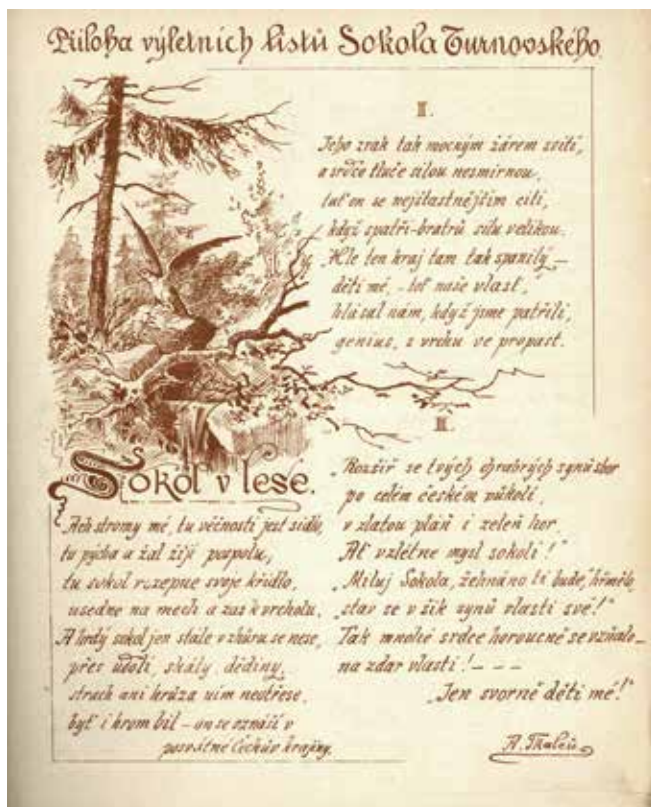 Příloha výletních listů Sokola Turnovského.
Sokol v lese.
Ach stromy mé, tu věčnosti jest sídlo,
tu pýcha a žal žijí pospolu,
tu sokol rozepne svoje křídlo,
usedne na mech a zas k vrcholu.
A hrdý sokol jen stále vzhůru se nese,
přes údolí, skály, dědiny,
strach ani hrůza jím neotřese,
byť i hrom bil – on se vznáší v
posvátné Čechův krajiny.
II.
Jeho zrak tak mocným žárem svítí,
a srdce tluče silou nesmírnou,
tuť on se nejšťastnějším cítí,
když spatří bratrů sílu velikou.
Hle ten kraj tam tak spanilý –
děti mé, – toť naše vlast,
hlásal nám, když jsme patřili,
genius, s vrchu ve propast.
III.
„Rozšiř se tvých chrabrých synů sbor
po celém českém vůkolí,
v zlatou pláň i zeleň hor.
Ať vzlétne mysl sokolí!"
„Miluj Sokola, žehnáno ti bude," hřmělo,
„stav se v šik synů vlasti své!"
Tak mnohé srdce horoucně se vzňalo –
na zdar vlasti! – – –
„Jen svorně děti mé!"